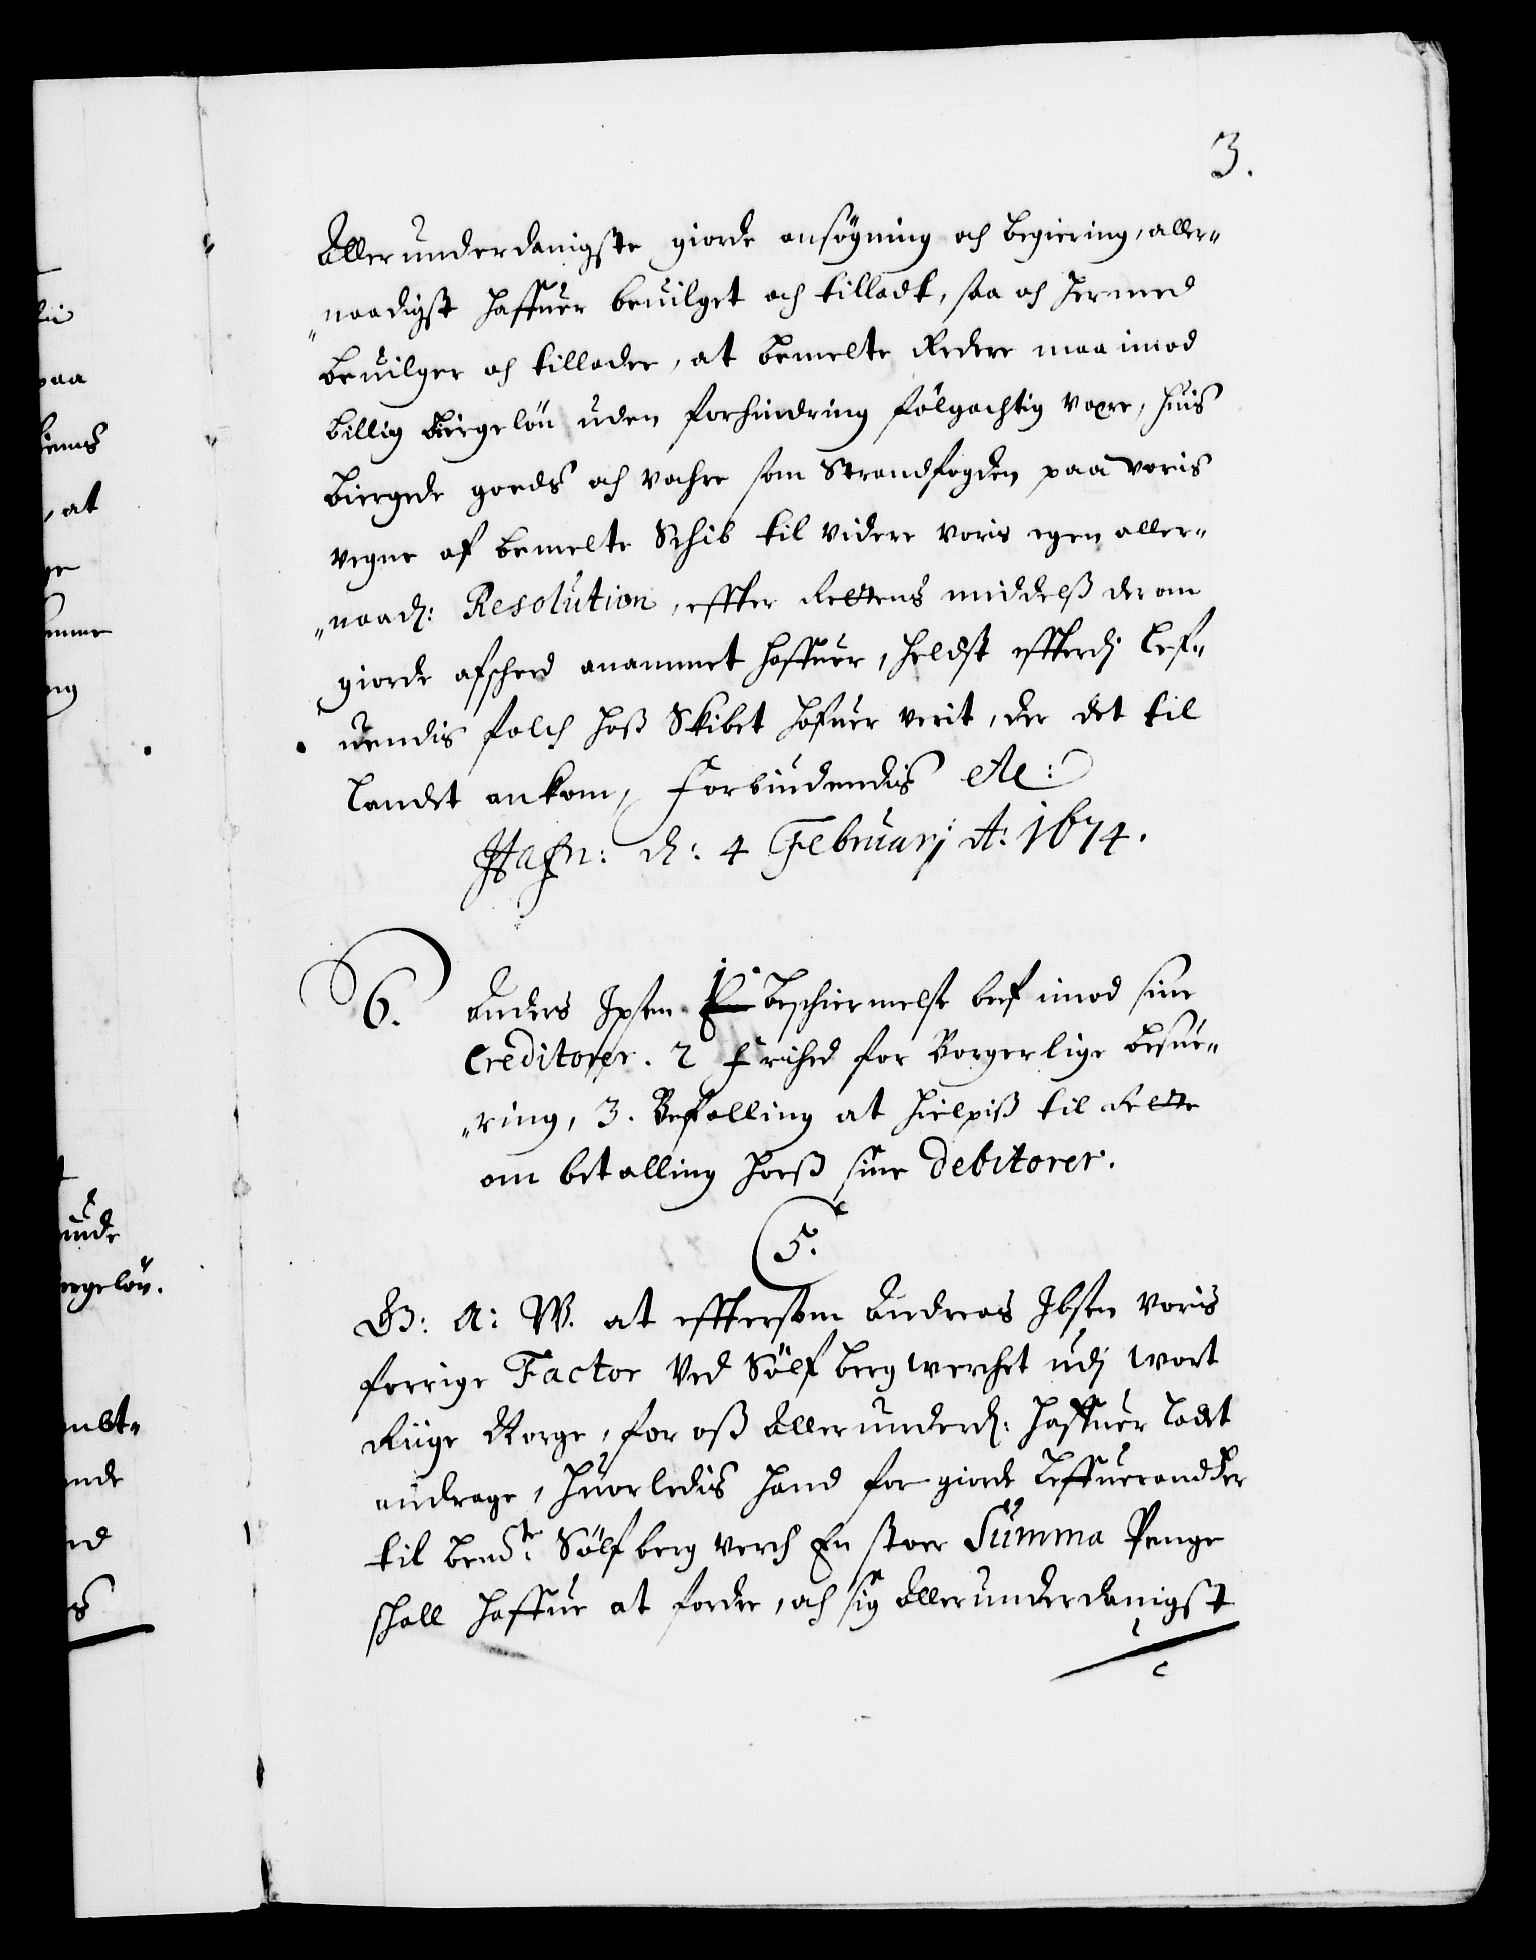 3.
Allerunderdanigste giorde ansögning och begiering, aller-
naadigst haffuer beuilget och tilladt, saa och hermed
beuilger och tillader, at bemelte Redere maa imod
billig biergelön uden forhindring fölgachtig være, huis
biergede goeds och vahre som Strandfogden paa voris
vegne af bemelte Schib til videre voris egen aller-
naad: Resolution, effter Rettens middelß derom
giorde afscheed anammet haffuer, heldst effterdj lef-
uendis folch hoß Skibet hafuer verit, der det til
landet ankom, Forbindendis etc:
Hafn: d: 4 Februarj A: 1674.
6. Anders Ipsen 1. beschiermelse bref imod sine
Creditorer. 2 Frihed for Borgerlige besue-
ring, 3. Befalling at hielpiß til Rette
om betalling hoeß sine Debitorer.
5.
G: A: W. at efftersom Andreas Ibsen voris
forrige Factor Ved Sölf berg werchet udj wort
Riige Norge, for oß allerunderd: haffuer ladet
andrage, huorledis hand for giorde leffuerandzer
til bem.te Sölf berg verch En stoer Summa Penge
schall haffue at fordre, och sig allerunderdanigst